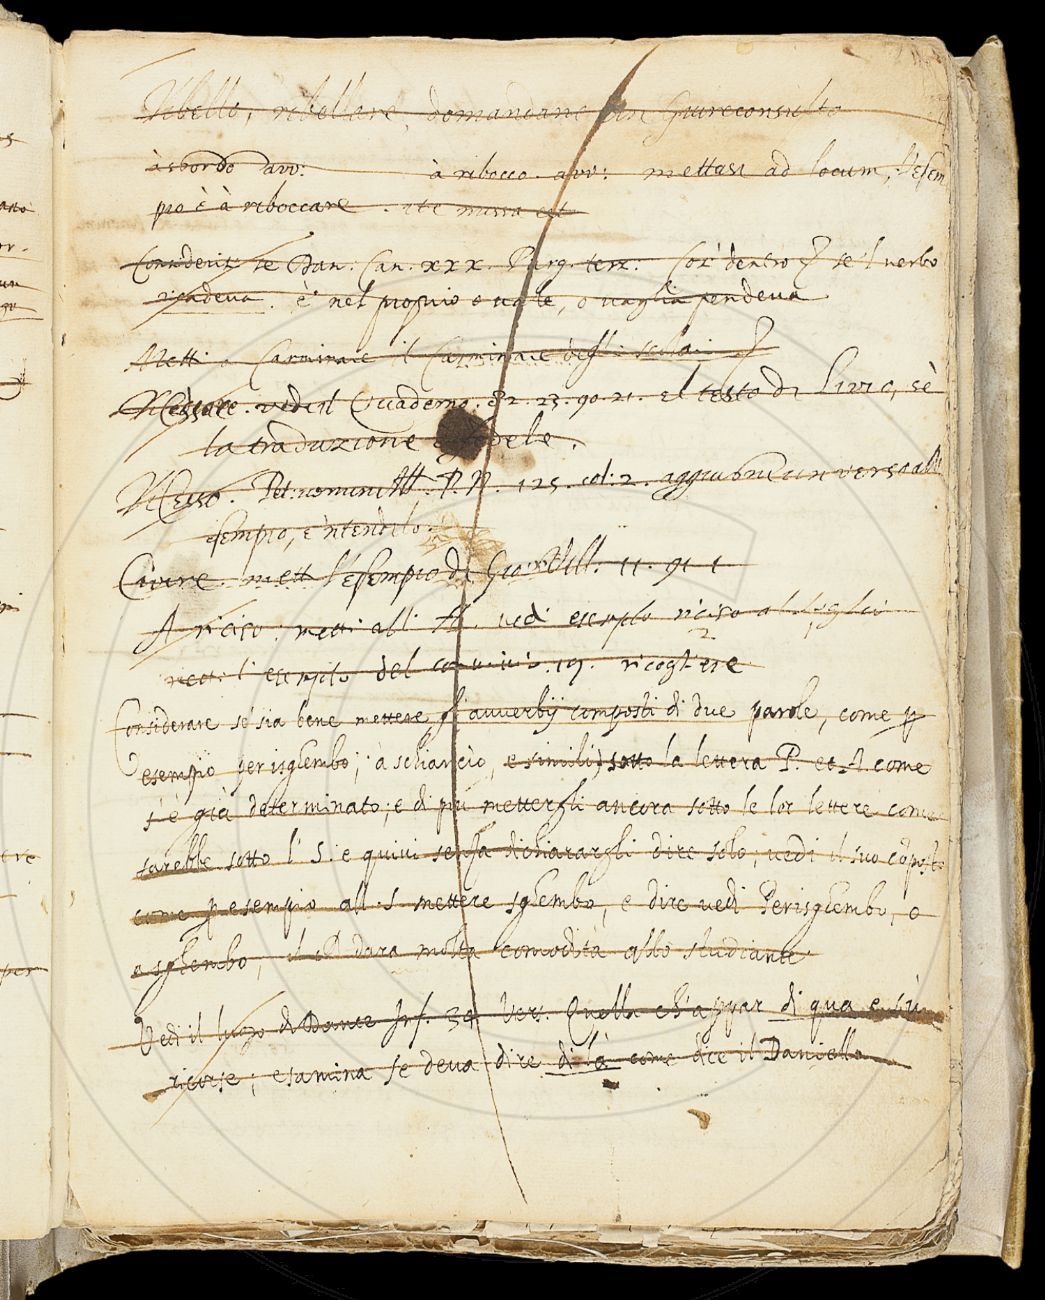 Ribello, ribellare, domandane un Giureconsulto
à sbordo avv: à ribocco. avv: mettasi ad locum, l'esem
pio è à riboccare.
se Dan: Can. xxx. Purg. terz: Cor dentro se'l verbo
è nel proprio o vale, o vaglia pendeva
Metti Carminare il Carminare degli scolai
vedi il Quaderno. 82. 23. 90. 21. el testo di Livio, sè
la traduzione è fedele.
Pet: uomini Ill. P. N. 125. col: 2. aggiugni un verso all
esempio, e 'ntendilo.
mett l'esempio di Gio: Vill. 11. 91. 1
A riciso: metti all' A. vedi esemplo riciso al foglio
2
l'esemplo del 19. ricogliere
Considerare se sia bene mettere gli avverbij composti di due parole, come p
esempio per isghembo; à schiancio, e simili) sotto la lettera P. et A. come
s'è già determinato; e di più mettergli ancora sotto le lor lettere come
sarebbe sotto l'S. e quivi senza dichiarargli dire solo; vedi il suo cōposto
come p esempio all S. mettere sghembo, e dire vedi Perisghembo, o
a sghembo, il ch dara molta comodità allo studiante
Vedi il luogo di Dante Inf. 34 Vers. Quella ch'appar di qua e sù
ricorse; esamina se deva dire di là come dice il Daniello